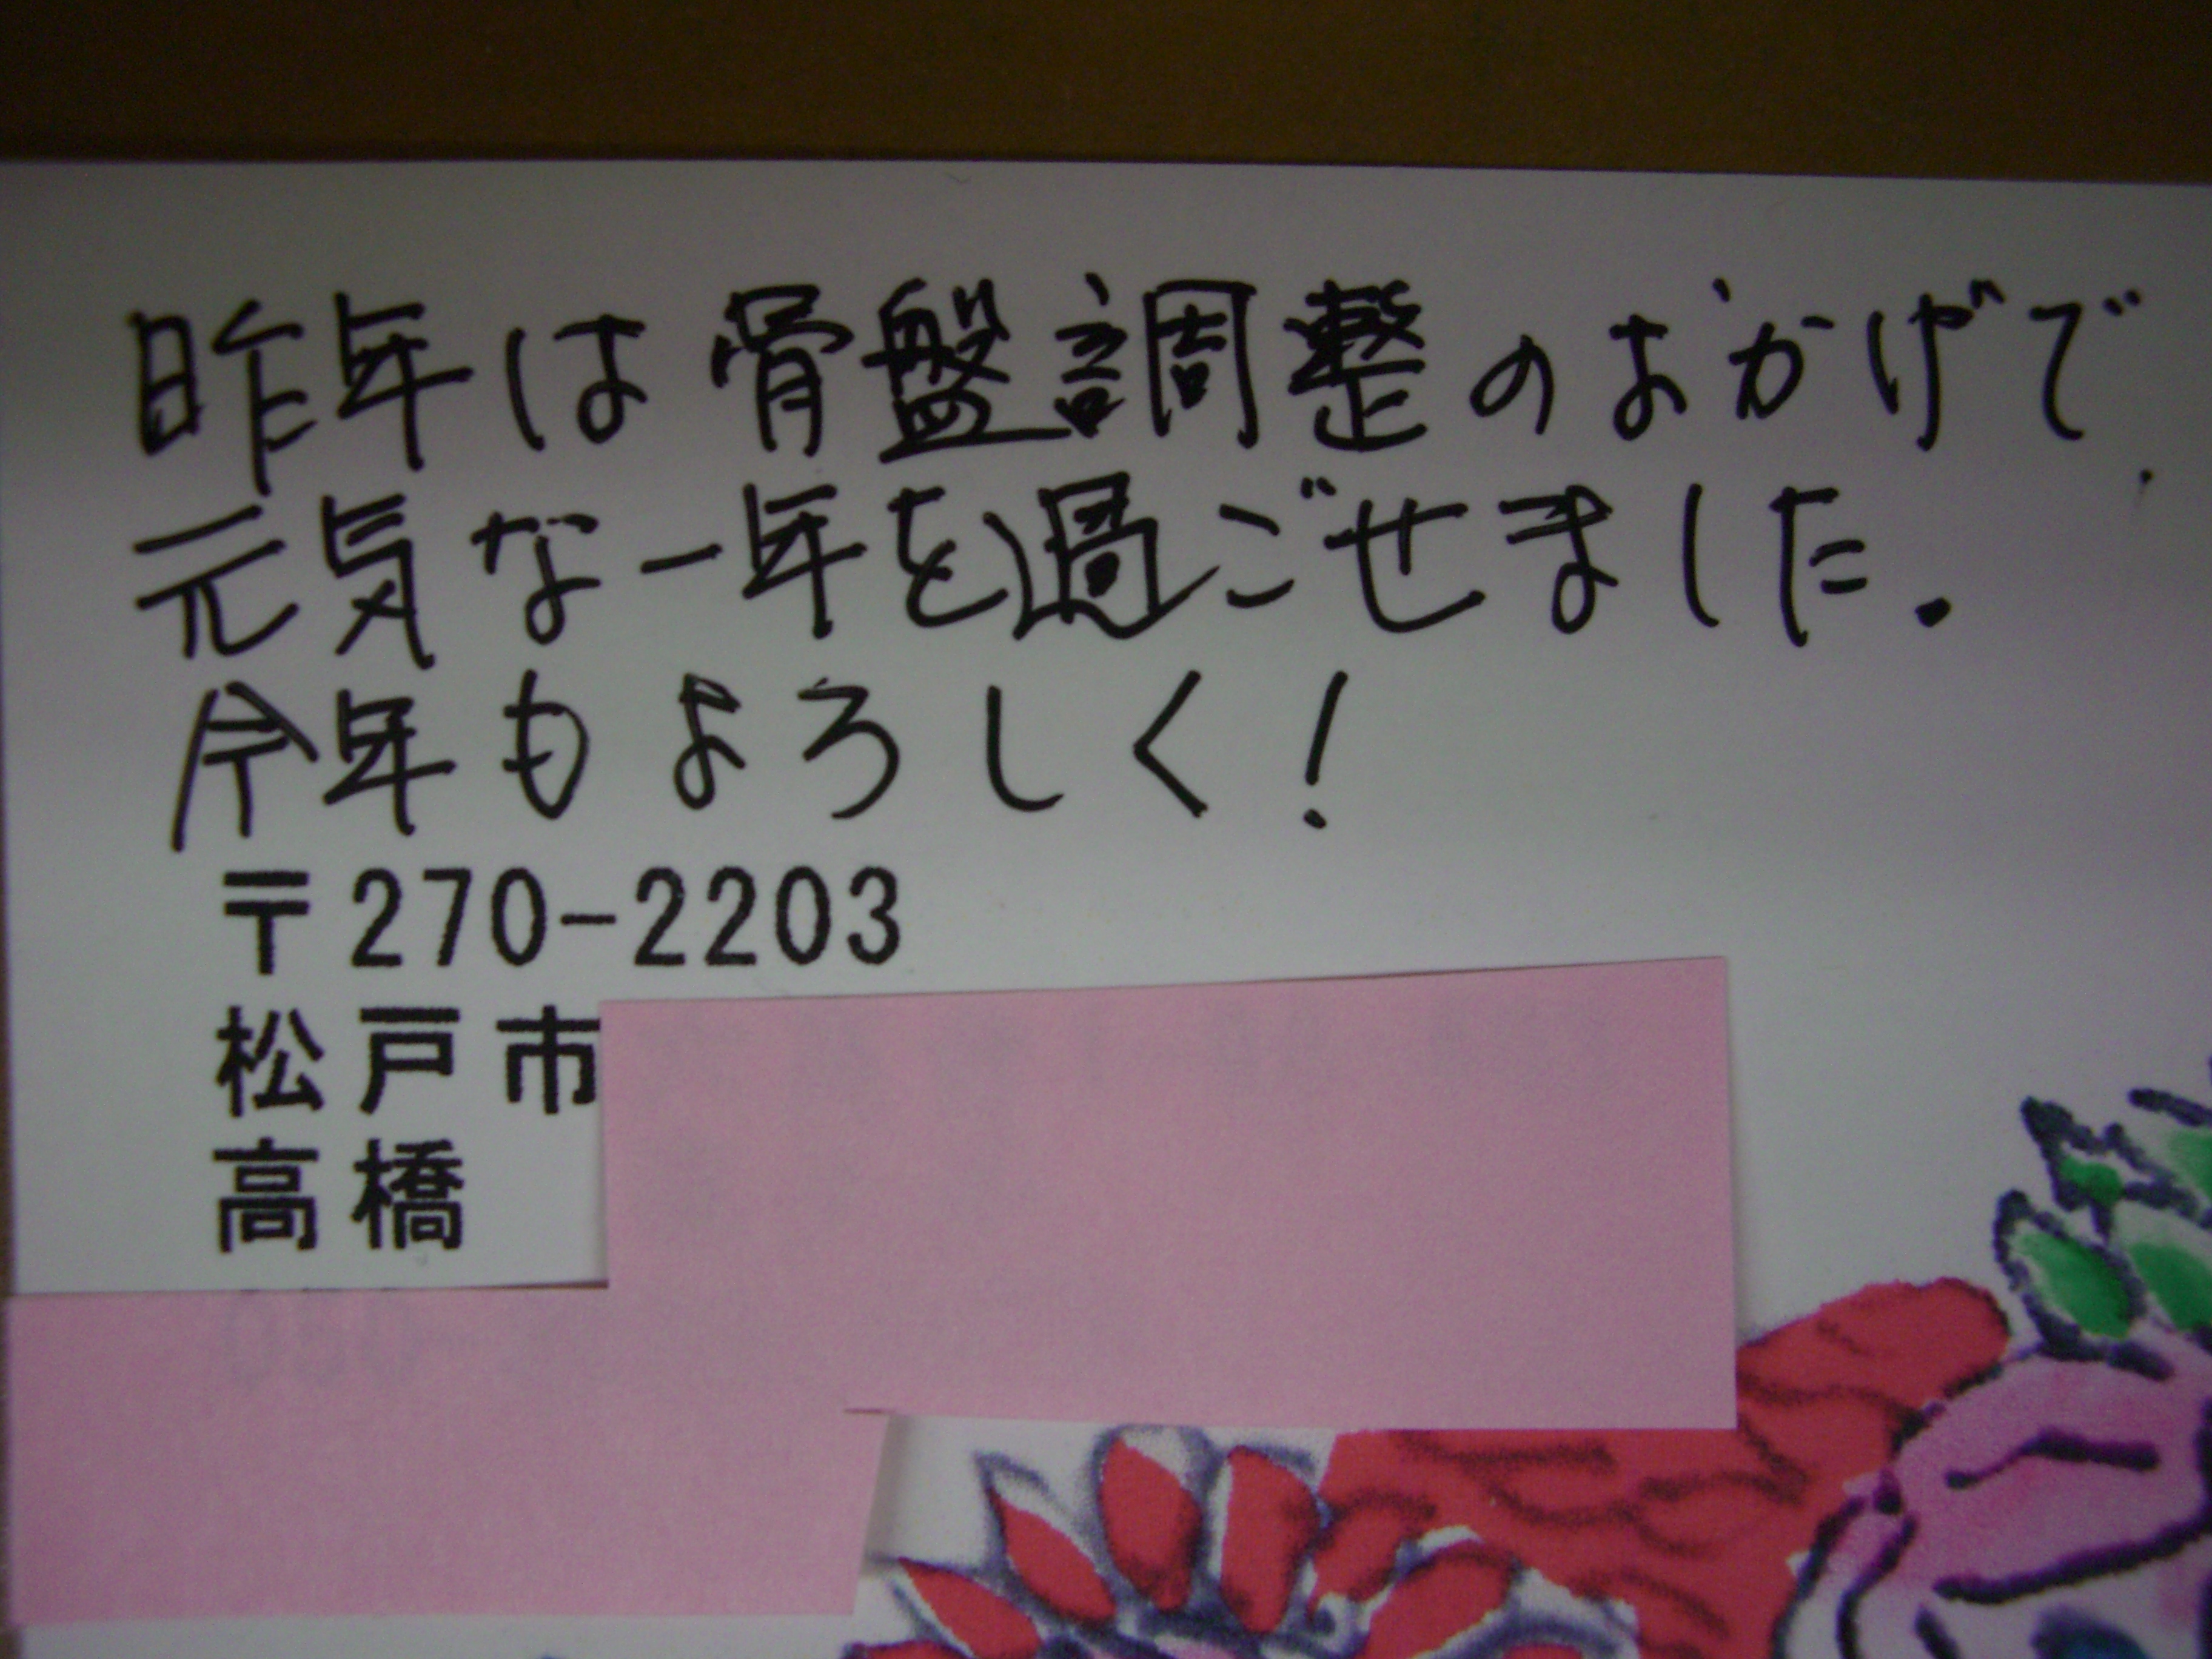 昨年は骨盤調整のおかげで
元気な一年を過ごせました.
今年もよろしく!
〒270-2203
松戸市
高橋